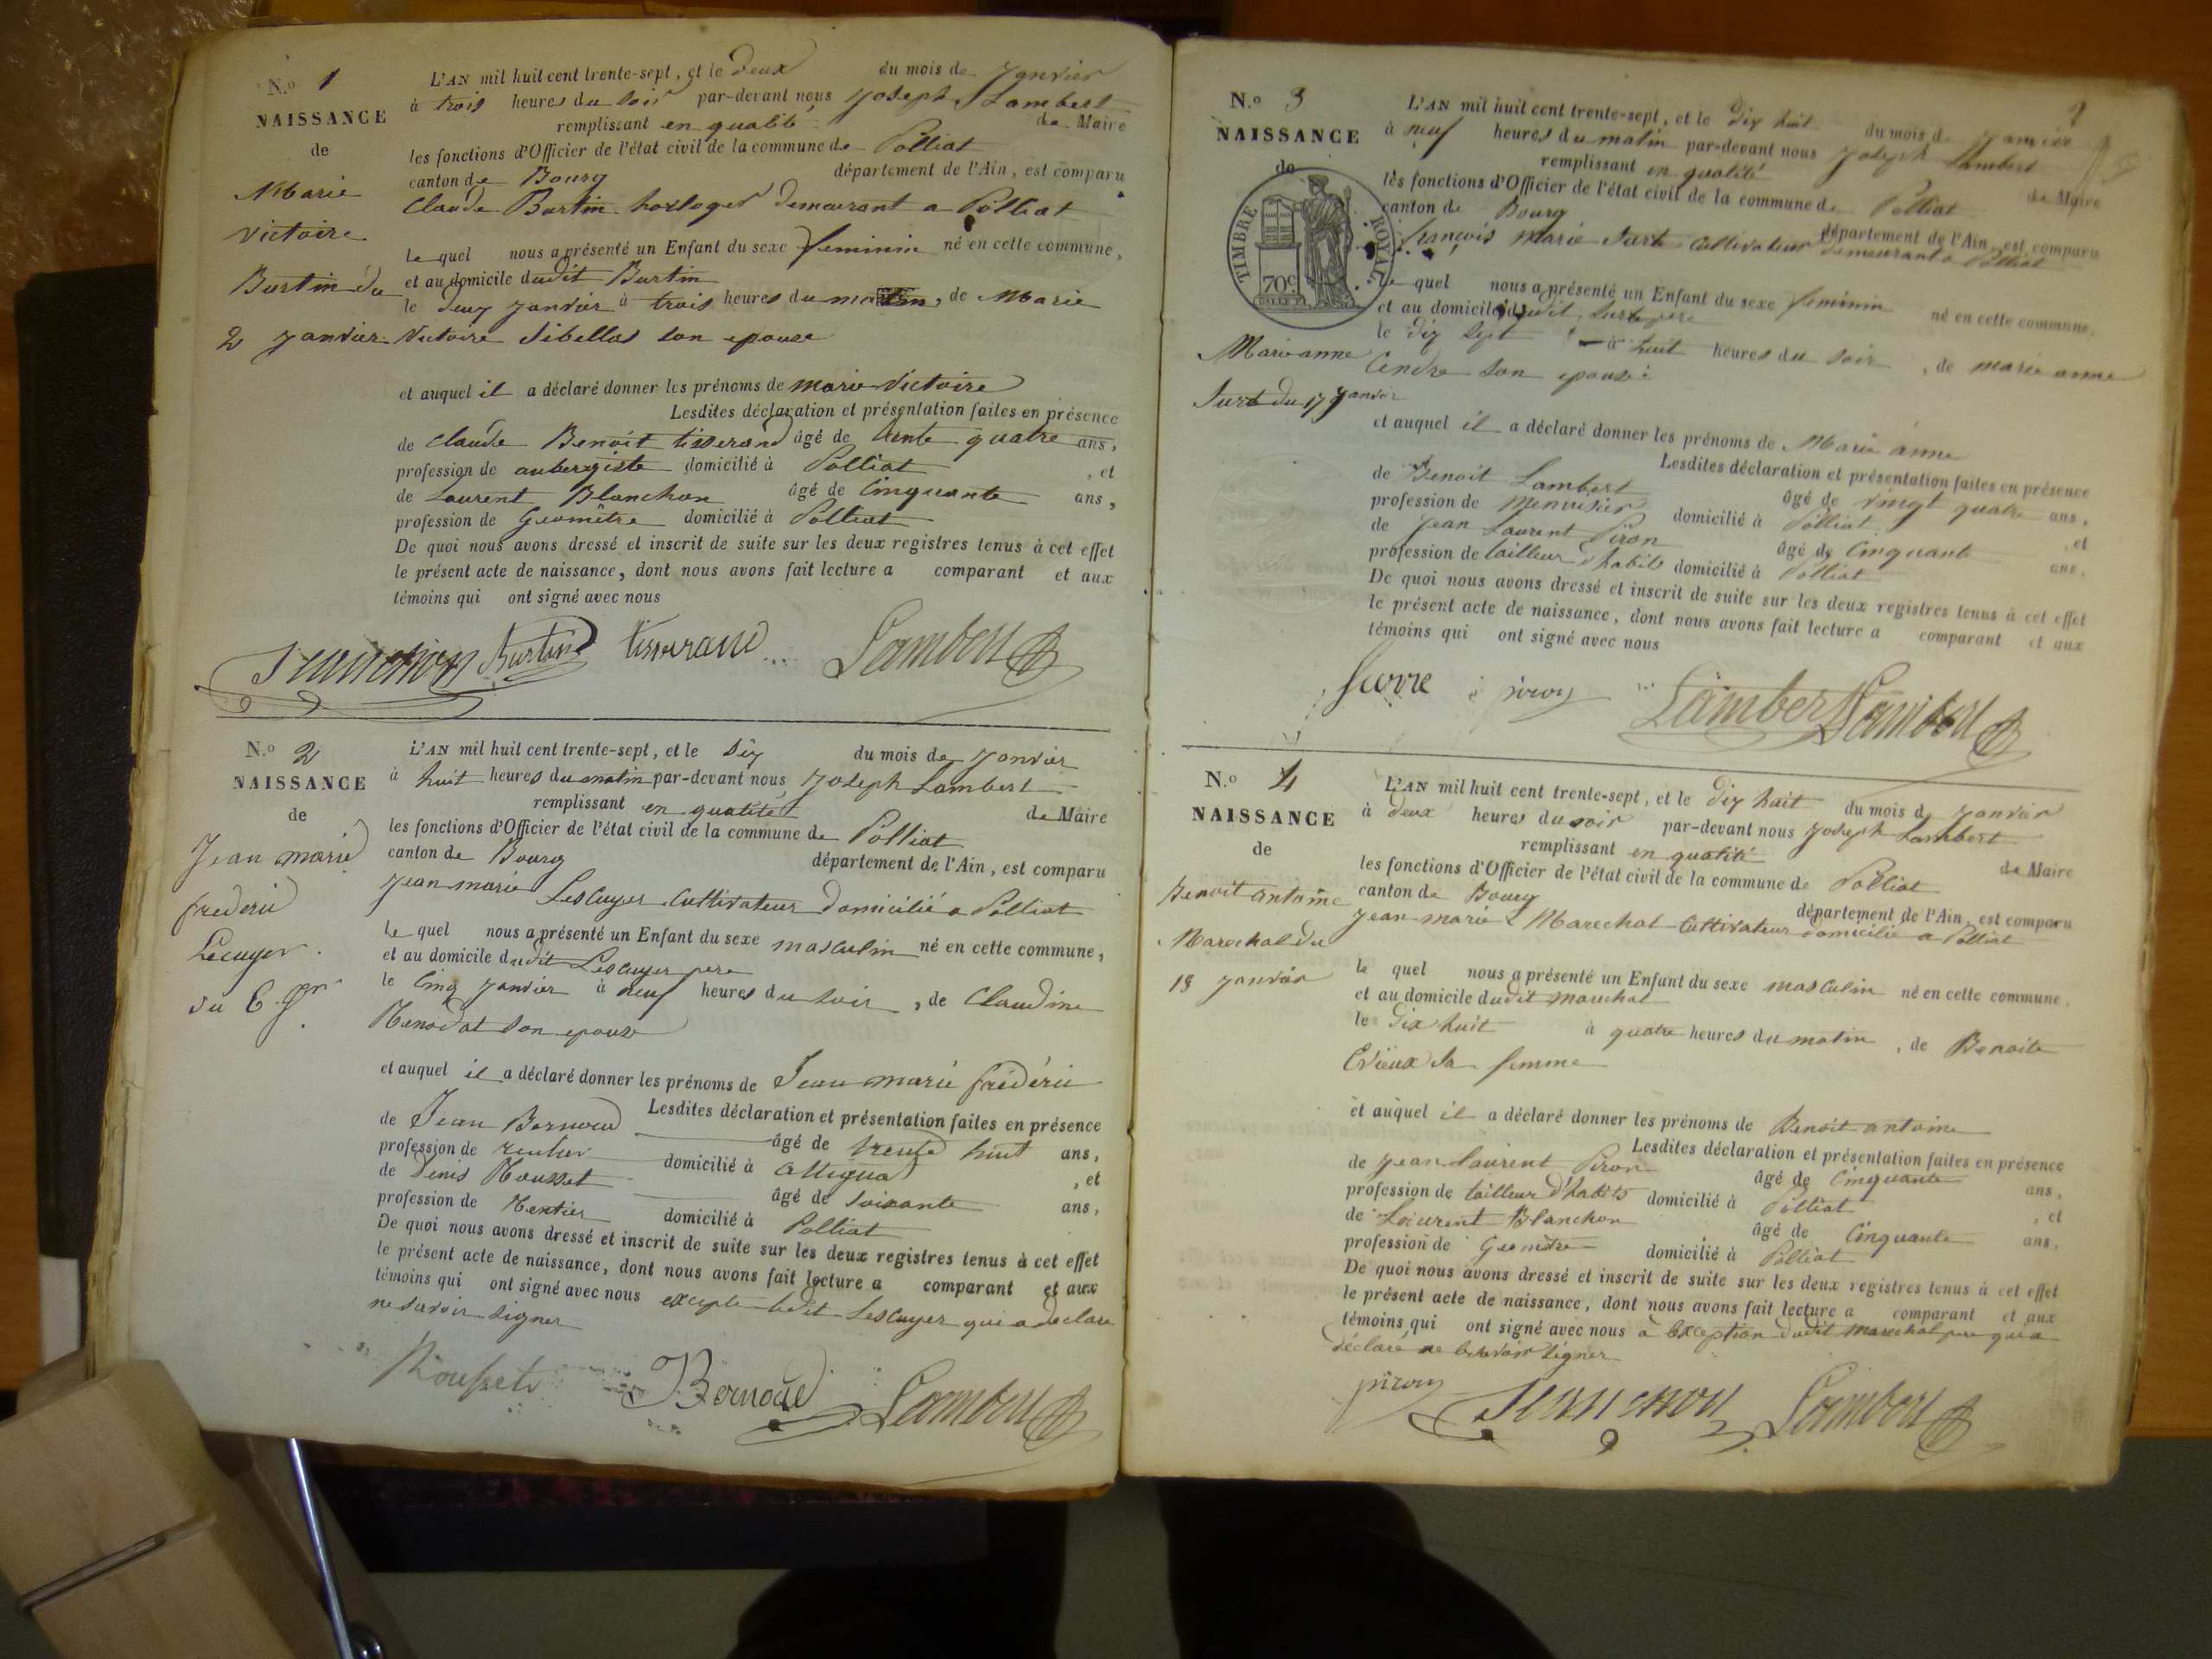 N.o 1
NAISSANCE
de
Marie
Victoire
Burtin du
2 Janvier
L'AN mil huit cent trente-sept, et le deux du mois de Janvier
à trois heures du soir par-devant nous Joseph Lambert
remplissant en qualité de Maire
les fonctions d'Officier de l'état civil de la commune de Polliat
canton de Bourg département de l'Ain, est comparu
Claude Burtin horloger demeurant a Polliat
le quel nous a présenté un Enfant du sexe feminin né en cette commune,
et au domicile dudit Burtin
le deux Janvier à trois heures du matin, de Marie
Victoire Sibellas son epouse
et auquel il a déclaré donner les prénoms de marie Victoire
Lesdites déclaration et présentation faites en présence
de Claude Benoit tisserand âgé de trente quatre ans,
profession de aubergiste domicilié à Polliat, et
de Laurent Blanchon âgé de Cinquante ans,
profession de Geomêtre domicilié à Polliat
De quoi nous avons dressé et inscrit de suite sur les deux registres tenus à cet effet
le présent acte de naissance, dont nous avons fait lecture a comparant et aux
témoins qui ont signé avec nous
Burtin tisserand Lambert
N.o 2
NAISSANCE
de
Jean marie
frederic
Lécuyer
du 6
L'AN mil huit cent trente-sept, et le Six du mois de Janvier
à huit heures du matin par-devant nous Joseph Lambert
remplissant en qualité de Maire
les fonctions d'Officier de l'état civil de la commune de Polliat
canton de Bourg département de l'Ain, est comparu
Jean marie Lescuyer Cultivateur domicilié a Polliat
le quel nous a présenté un Enfant du sexe masculin né en cette commune,
et au domicile dudit Lescuyer pere
le Cinq Janvier à neuf heures du soir, de Claudine
Renodat son epouse
et auquel il a déclaré donner les prénoms de Jean marie frédéric
Lesdites déclaration et présentation faites en présence
de Jean Bernoud âgé de trente huit ans,
profession de rentier domicilié à Attignat, et
de Denis Rousset âgé de soixante ans,
profession de Rentier domicilié à Polliat
De quoi nous avons dressé et inscrit de suite sur les deux registres tenus à cet effet
le présent acte de naissance, dont nous avons fait lecture a comparant et aux
témoins qui ont signé avec nous excepté ledit Lescuyer qui a declaré
ne savoir signer
Rousset Bernoud Lambert
2
N.o 3
NAISSANCE
de
TIMBRE ROYAL
70c
Marie anne
Jurt du 17 Janvier
L'AN mil huit cent trente-sept, et le dix huit du mois de Janvier
à neuf heures du matin par-devant nous Joseph Lambert
remplissant en qualité de Maire
les fonctions d'Officier de l'état civil de la commune de Polliat
canton de Bourg département de l'Ain, est comparu
françois marie cultivateur demeurant a Polliat
le quel nous a présenté un Enfant du sexe feminin né en cette commune,
et au domicile dudit pere
le dix sept à huit heures du soir, de marie anne
Cendre son epouse
et auquel il a déclaré donner les prénoms de Marie anne
Lesdites déclaration et présentation faites en présence
de Benoit Lambert âgé de vingt quatre ans,
profession de Menuisier domicilié à Polliat, et
de Jean Laurent Piron âgé de Cinquante ans,
profession de tailleur d'habits domicilié à Polliat
De quoi nous avons dressé et inscrit de suite sur les deux registres tenus à cet effet
le présent acte de naissance, dont nous avons fait lecture a comparant et aux
témoins qui ont signé avec nous
piron Lambert Lambert
N.o 4
NAISSANCE
de
Benoit antoine
Marechal du
18 Janvier
L'AN mil huit cent trente-sept, et le dix huit du mois de Janvier
à deux heures du soir par-devant nous Joseph Lambert
remplissant en qualité de Maire
les fonctions d'Officier de l'état civil de la commune de Polliat
canton de Bourg département de l'Ain, est comparu
Jean marie Marechal Cultivateur domicilié a Polliat
le quel nous a présenté un Enfant du sexe masculin né en cette commune,
et au domicile dudit marechal
le Dix huit à quatre heures du matin, de Benoite
Evieux sa femme
et auquel il a déclaré donner les prénoms de Benoit antoine
Lesdites déclaration et présentation faites en présence
de Jean Laurent Piron âgé de Cinquante ans,
profession de tailleur d'habits domicilié à Polliat, et
de Laurent Blanchon âgé de Cinquante ans,
profession de Geomètre domicilié à Polliat
De quoi nous avons dressé et inscrit de suite sur les deux registres tenus à cet effet
le présent acte de naissance, dont nous avons fait lecture a comparant et aux
témoins qui ont signé avec nous a lexception dudit marechal pere qui a
déclaré ne le savoir signer
piron Lambert